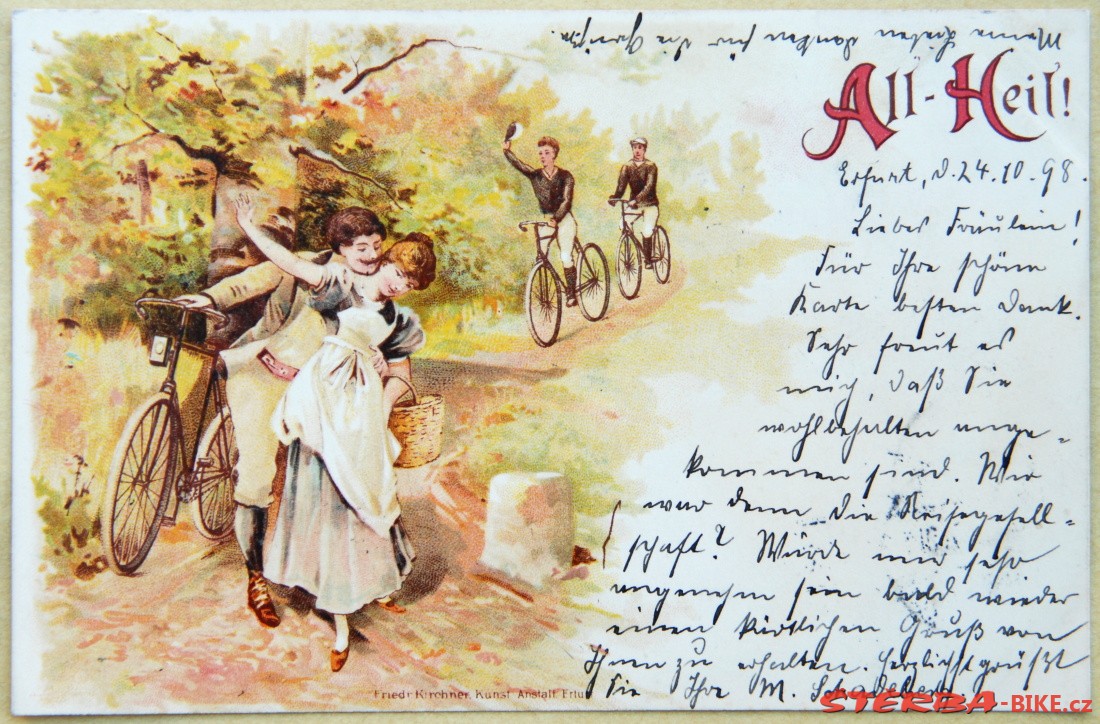 Meine Eltern danken für die Grüße.
All-Heil!
Erfurt, d. 24.10.98.
Liebes Fräulein!
Für Ihre schöne
Karte besten Dank.
Sehr freut es
mich, daß Sie
wohlbehalten ange-
kommen sind. Wie
war denn die Reisegesell-
schaft? Würde mir sehr
angenehm sein bald wieder
einen schriftlichen Gruß von
Ihnen zu erhalten. Herzlichst grüßt
Sie Ihr M.
Friedr. Kirchner, Kunst Anstalt, Erfu
STERBA-BIKE.cz